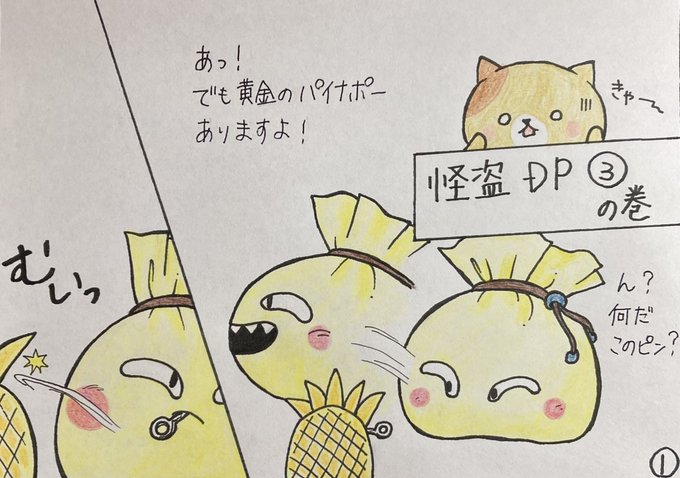 怪盗 ÐP ③
の巻
きゃ〜
あっ!
でも黄金のパイナポー
ありますよ!
ん?
何だ
このピン?
むいっ
①